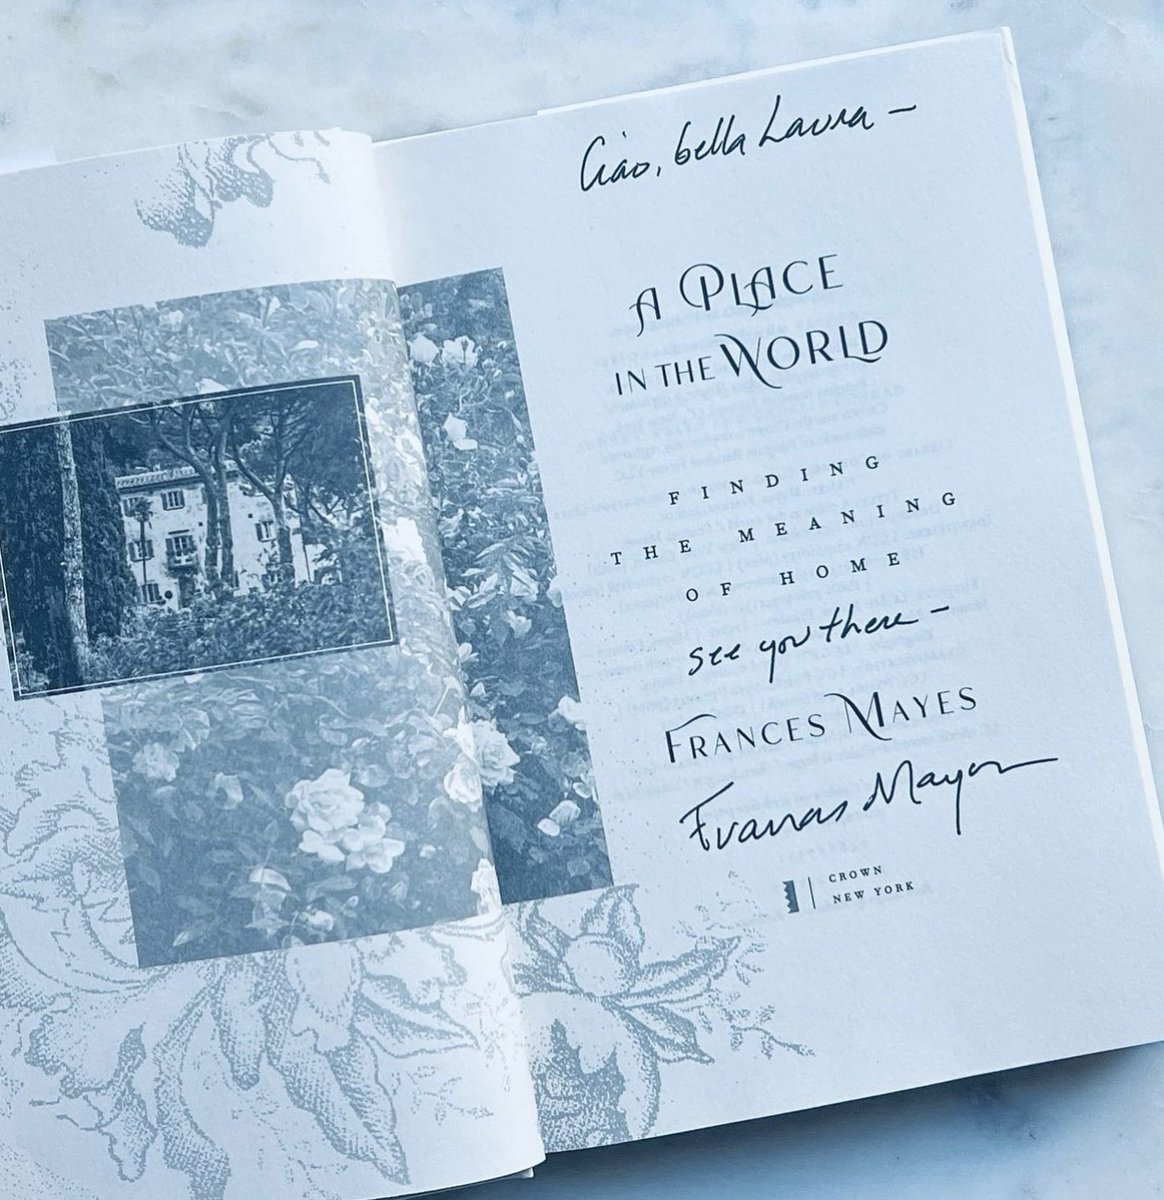 Ciao, bella Laura –
A PLACE
IN THE WORLD
FINDING
THE MEANING
OF HOME
see you there –
FRANCES MAYES
Frances Mayes
CROWN
NEW YORK